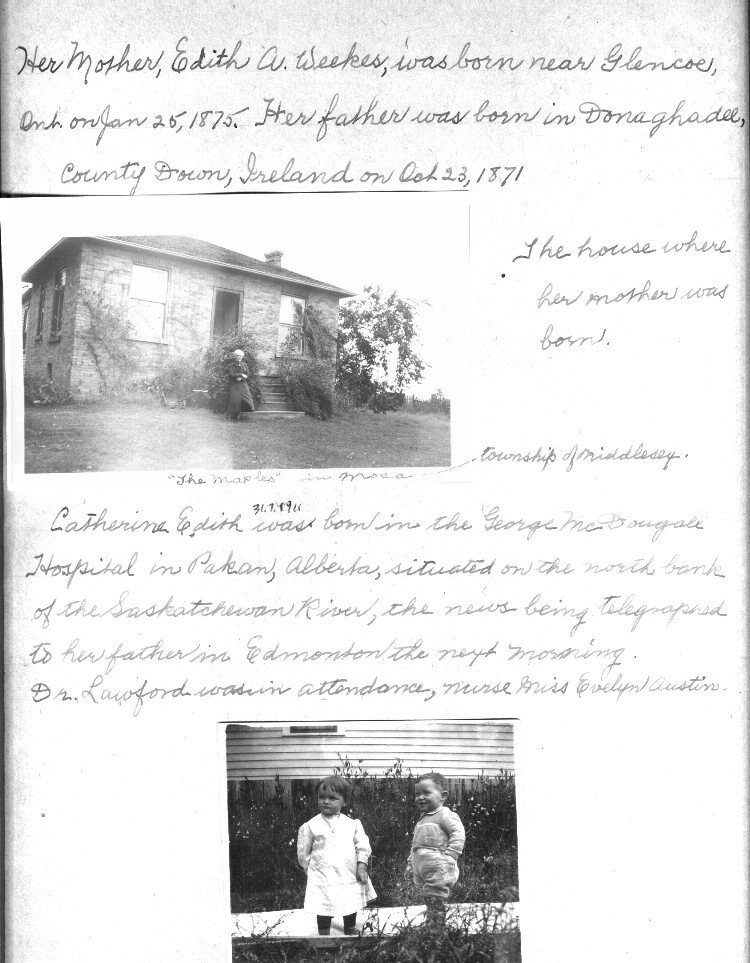 Her Mother, Edith A. Weekes, was born near Glencoe,
Ont. on Jan 25, 1875. Her father was born in Donaghadee,
County Down, Ireland on Oct 23, 1871
The house where
her mother was
born.
township of Middlesex.
"The Maples" in Mosa
31.7.1911
Catherine Edith was born in the George McDougall
Hospital in Pakan, Alberta, situated on the north bank
of the Saskatchewan River, the news being telegraphed
to her father in Edmonton the next morning.
Dr. Lawford was in attendance, nurse Miss Evelyn Austin.